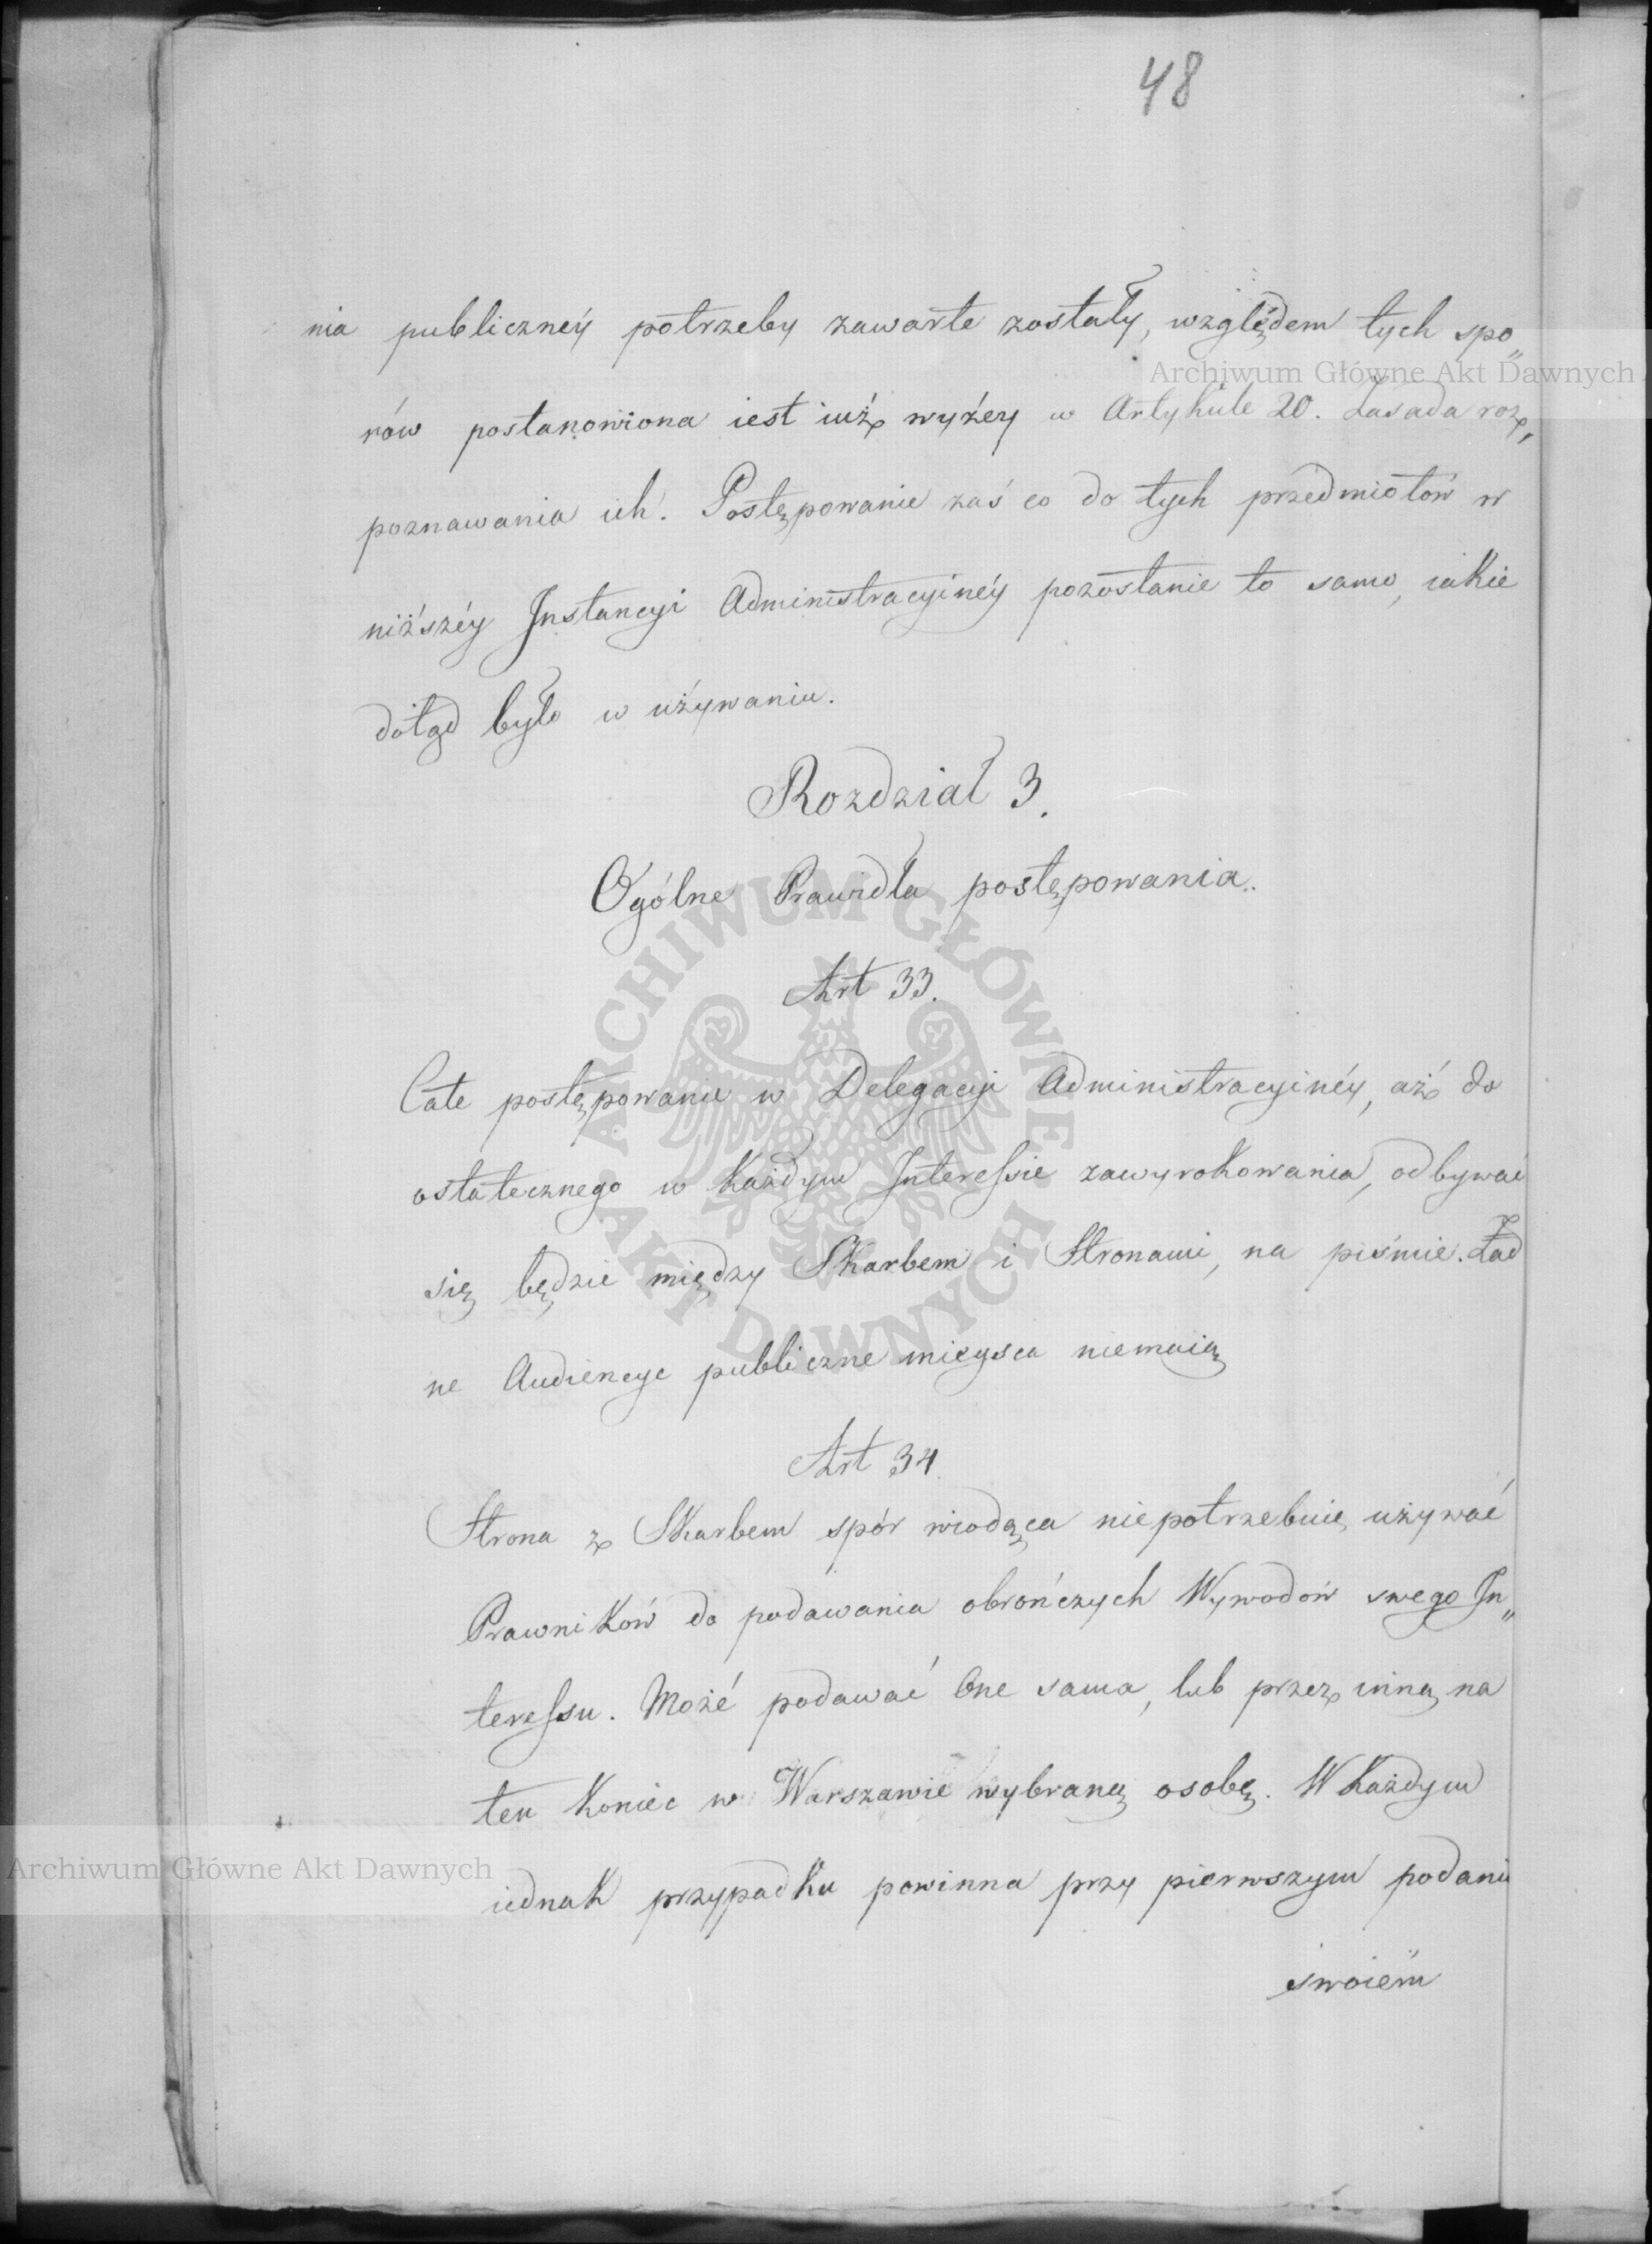 48
nia publicznéy potrzeby zawarte zostały, względem tych spo„
rów postanowiona iest iuż wyżey w Artykule 20. Zasada roz„
poznawania ich. Postępowanie zaś co do tych przedmiotów w
niższéy Instancyi Administracyinéy pozostanie to samo, iakie
dotąd było w używaniu.
Rozdział 3.
Ogólne Prawidła postępowania.
Art 33.
Całe postępowanie w Delegacyi Administracyinéy, aż do
ostatecznego w każdym Interessie zawyrokowania, odbywać
się będzie między Skarbem i Stronami, na piśmie. Żad
ne Audiencye publiczne mieysca niemaią
Art 34.
Strona z Skarbem spór wiodąca niepotrzebuie używać
Prawników do podawania obrończych Wywodów swego In„
teressu. Może podawać One sama, lub przez inną na
ten koniec w Warszawie wybraną osobę. W każdym
iednak przypadku powinna przy pierwszym podaniu
swoiém
Archiwum Główne Akt Dawnych
Archiwum Główne Akt Dawnych
ARCHIWUM GŁÓWNE AKT DAWNYCH